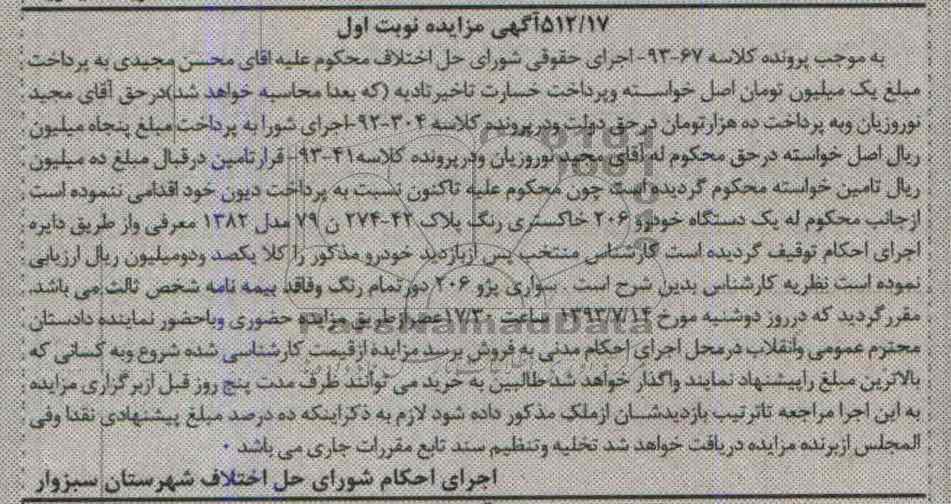 ۵۱۲/۱۷آگهی مزایده نوبت اول
به موجب پرونده کلاسه ۶۷-۹۳- اجرای حقوقی شورای حل اختلاف محکوم علیه اقای محسن مجیدی به پرداخت
مبلغ یک میلیون تومان اصل خواسته وپرداخت خسارت تاخیرتادیه (که بعدا محاسبه خواهد شد)درحق آقای مجید
نوروزیان وبه پرداخت ده هزارتومان درحق دولت ودرپرونده کلاسه ۳۰۴-۹۲-اجرای شورا به پرداخت مبلغ پنجاه میلیون
ریال اصل خواسته درحق محکوم له آقای مجید نوروزیان ودرپرونده کلاسه۴۱-۹۳- قرارتامین درقبال مبلغ ده میلیون
ریال تامین خواسته محکوم گردیده است چون محکوم علیه تاکنون نسبت به پرداخت دیون خود اقدامی ننموده است
ازجانب محکوم له یک دستگاه خودرو ۲۰۶ خاکستری رنگ پلاک ۴۲-۲۷۴ ن ۷۹ مدل ۱۳۸۲ معرفی واز طریق دایره
اجرای احکام توقیف گردیده است کارشناس منتخب پس ازبازدید خودرو مذکور را کلا یکصد ودومیلیون ریال ارزیابی
نموده است نظریه کارشناس بدین شرح است . سواری پژو ۲۰۶ دورتمام رنگ وفاقد بیمه نامه شخص ثالث می باشد.
مقررگردید که درروز دوشنبه مورخ ۱۳۹۳/۷/۱۴ ساعت ۱۷/۳۰عصرازطریق مزایده حضوری وباحضور نماینده دادستان
محترم عمومی وانقلاب درمحل اجرای احکام مدنی به فروش برسد مزایده ازقیمت کارشناسی شده شروع وبه کسانی که
بالاترین مبلغ راپیشنهاد نمایند واگذار خواهد شدطالبین به خرید می توانند ظرف مدت پنج روز قبل ازبرگزاری مزایده
به این اجرا مراجعه تاترتیب بازدیدشان ازملک مذکور داده شود لازم به ذکراینکه ده درصد مبلغ پیشنهادی نقدا وفی
المجلس ازبرنده مزایده دریافت خواهد شد تخلیه وتنظیم سند تابع مقررات جاری می باشد .
اجرای احکام شورای حل اختلاف شهرستان سبزوار
ParsNamadData